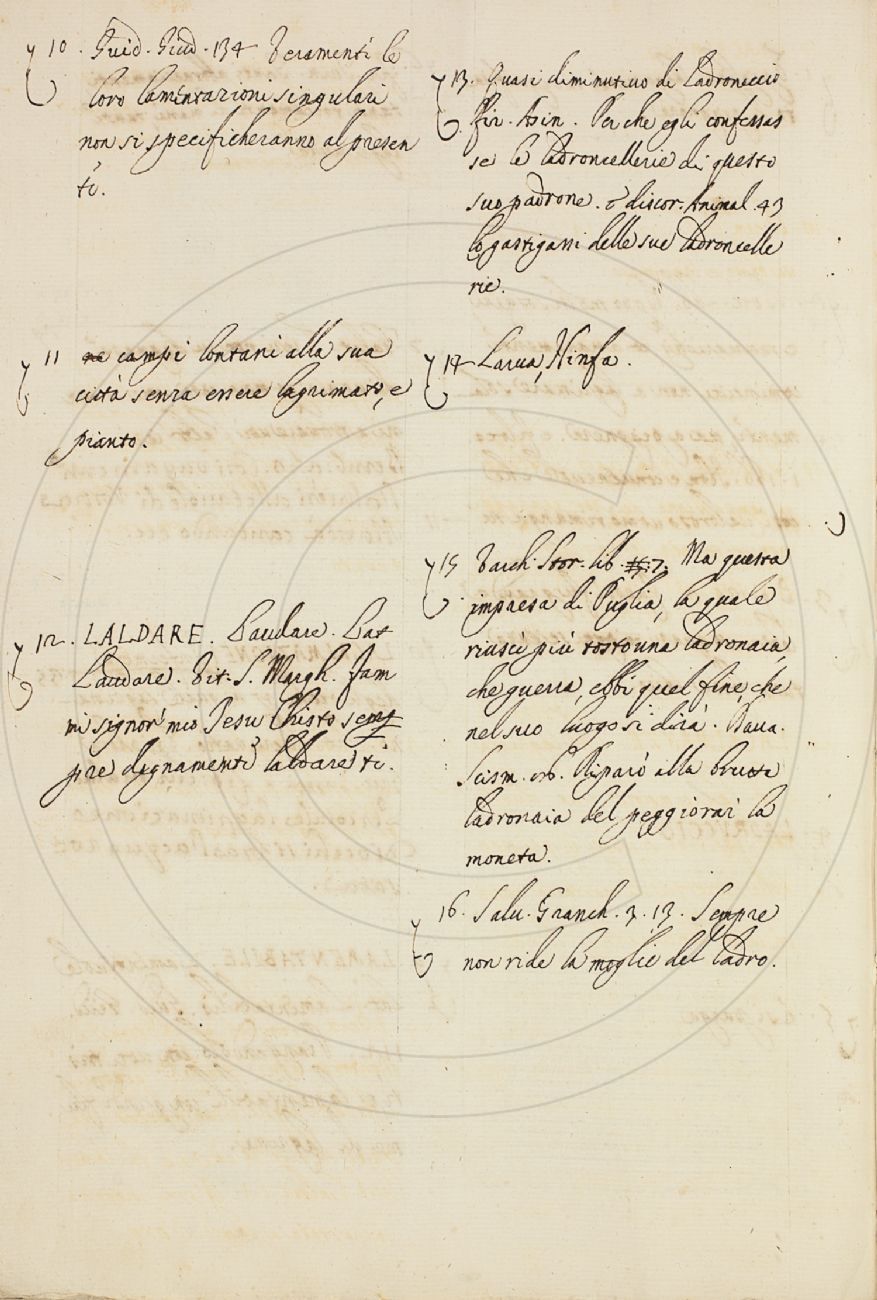 10. Guid. Giud. 134 Veramenti le
loro lamentazioni singulari
non si specificheranno al presen
ti.
11 ne campi lontani alla sua
città senza essere lagrimato, e
pianto.
12. LALDARE. Laudare. Lat
Laudare. Vit. S. Margh. Fam
mi signor mio Jesu Christo sem
pre degnamenti laldare ti.
13. Quasi diminutivo di Ladroneccio
Fir. Asin. Perche egli confessas
se le ladroncellerie di questo
suo padrone. e discor. Animal. 43
lo gastigassi delle sue ladroncelle
rie.
14 Larva, Ninfa.
15 Varch. Stor. lib. 7. Ma questa
impresa di Puglia, la quale
riuscì più tosto una ladronaia,
che guerra, ebbi quel fine, che
nel suo luogo si dirà. Dava.
Scism. Riparò alla brutta
ladronaia del peggiorar la
moneta.
16. Salv. Granch. 3. 13. Sempre
non ride la moglie del ladro.